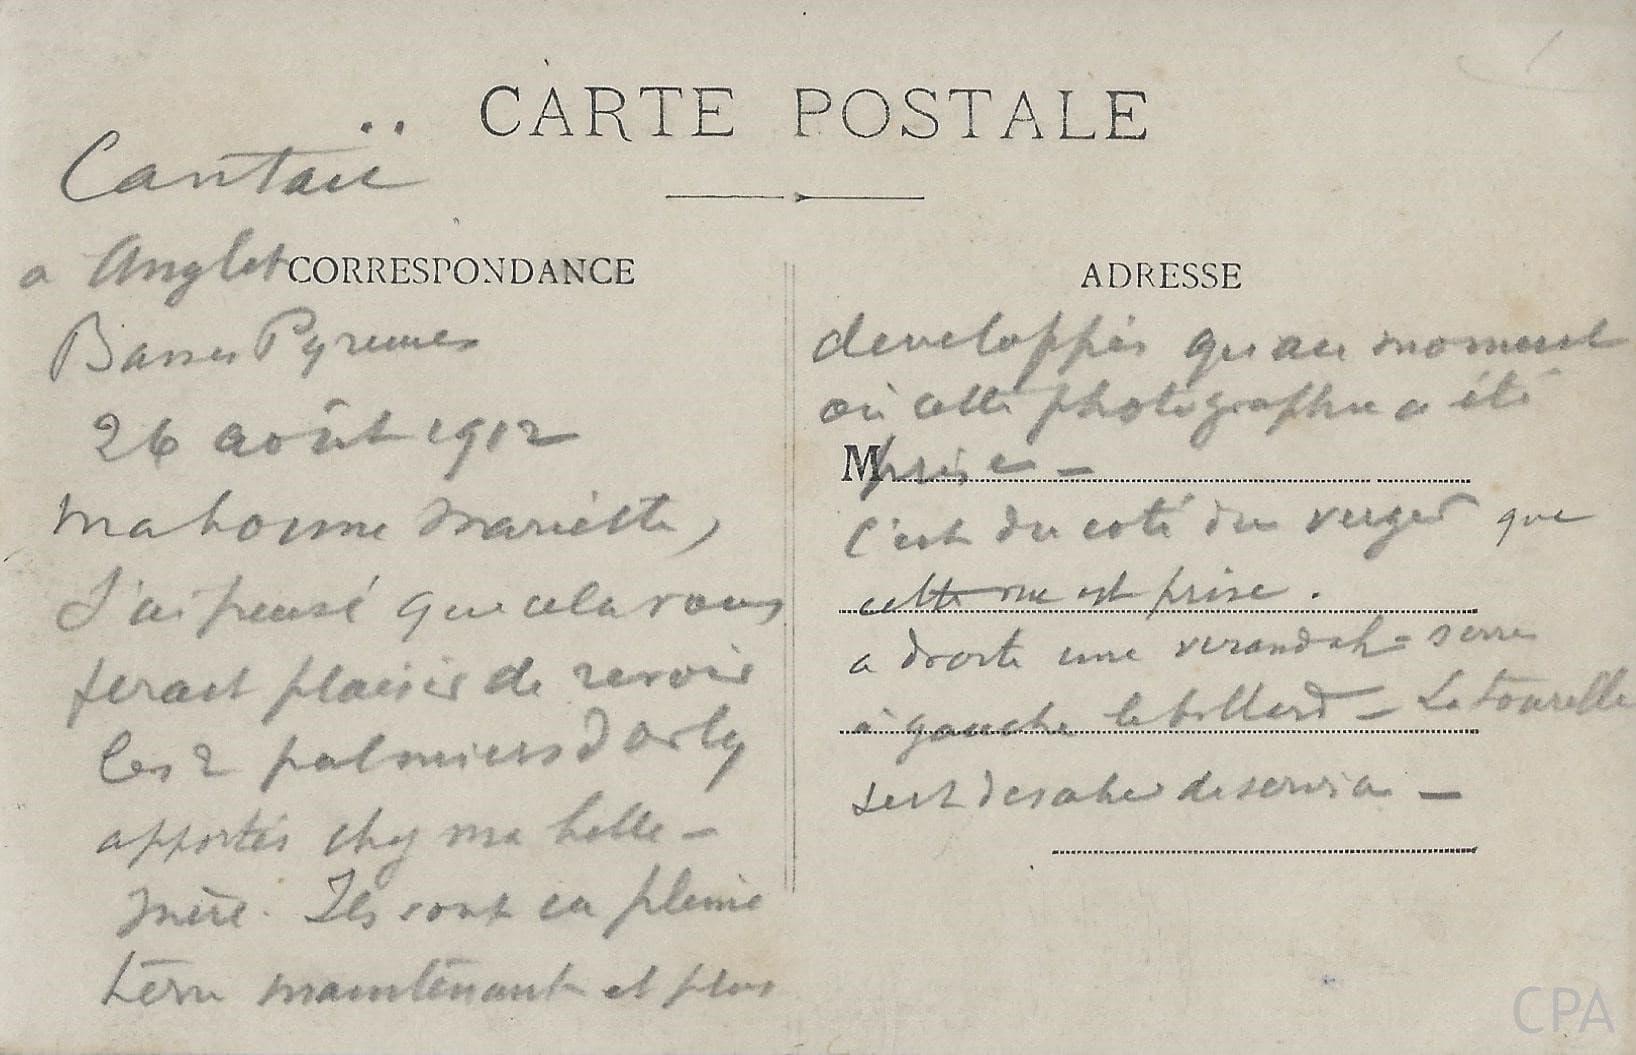 CARTE POSTALE
Cantaü
a Anglet
CORRESPONDANCE
Basses Pyrenees
26 août 1912
Ma bonne Mariette,
J'ai pensé que cela vous
ferait plaisir de revoir
les 2 palmiers d'Orly
apportés chez ma belle-
mère. Ils sont en pleine
terre maintenant et plus
ADRESSE
developpés qu'au moment
où cette photographie a été
M
prise –
C'est du coté du verger que
cette vue est prise.
a droite une verandah-serre
à gauche le billard – La tourelle
sert d'escalier de service –
CPA